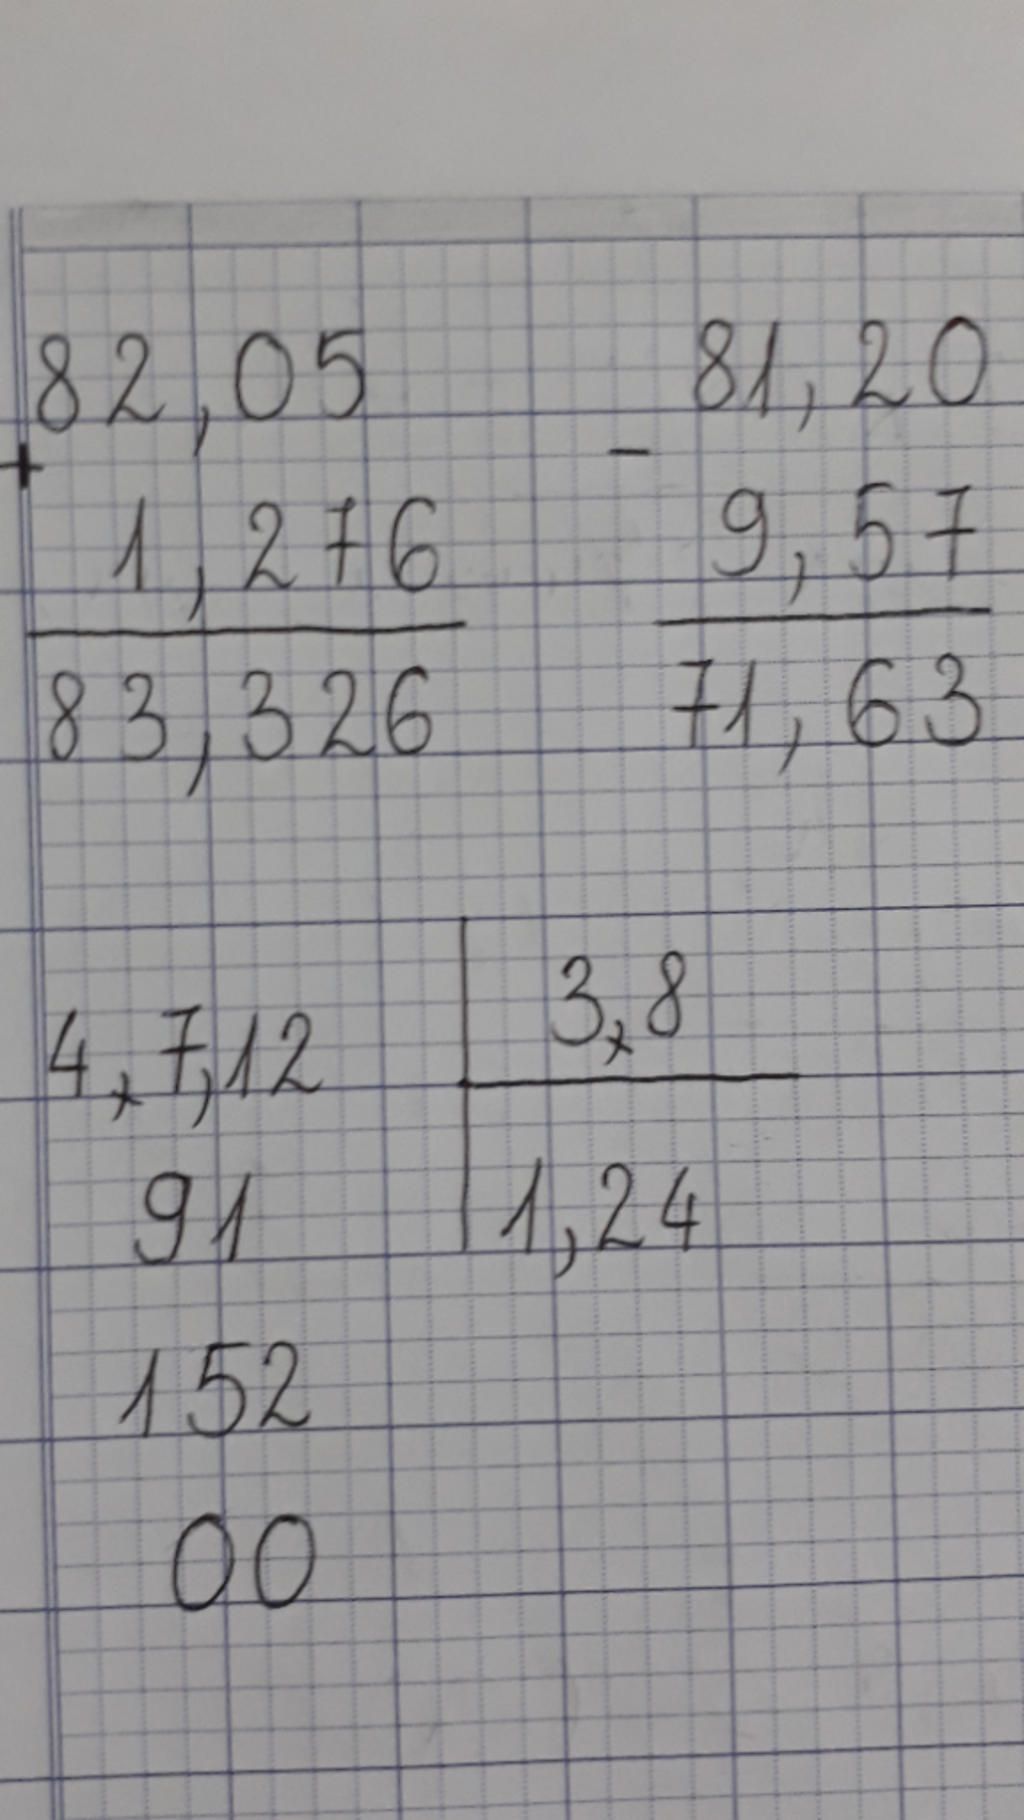 82,05
+
1,276
83,326
81,20
-
9,57
71,63
4,7,12 | 3,8
91 | 1,24
152
00